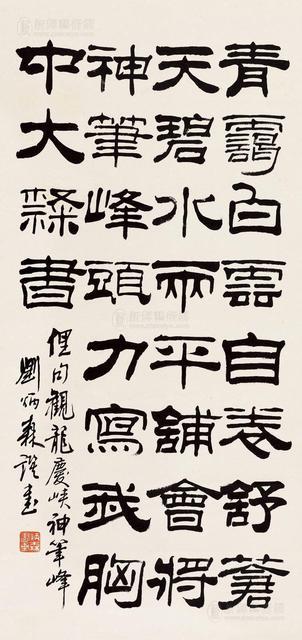 青靄白雲自卷舒蒼
天碧水兩平鋪會將
神筆峰頭力寫我胸
中大隸書
俚句觀龍慶峽神筆峰
劉炳森書